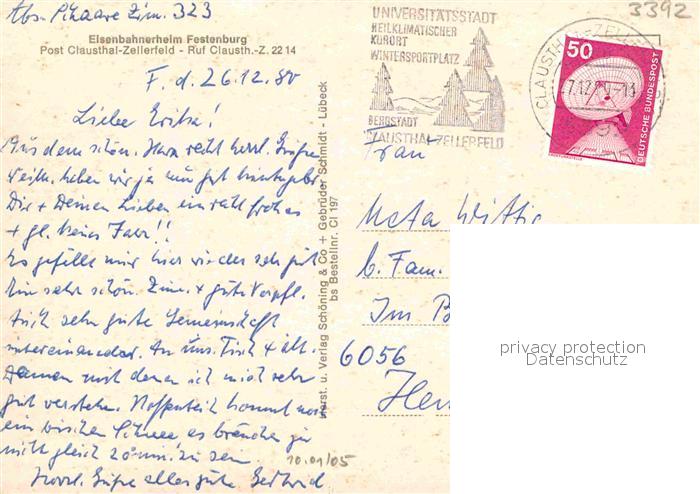 Abs. Zim. 323
3392
Eisenbahnerheim Festenburg
Post Clausthal-Zellerfeld - Ruf Clausth.-Z. 22 14
F. d. 26.12.80
Liebe
Aus dem schön. Harz recht herzl. Grüße
haben wir ja nun gut
Dir + Deinen Lieben ein recht frohes
+ gl. Neues Jahr!!
Es gefällt mir hier wieder sehr gut
Ein sehr schön. Zim. + gute Verpfl.
Auch sehr gute Gemeinschaft
untereinander. An uns. Tisch + ält.
Damen mit denen ich mich sehr
gut verstehe. Hoffentlich kommt noch
ein bischen Schnee es brauchen ja
nicht gleich 20 zu sein.
Herzl. Grüße alles gute Gertrud
10.01/05
Herst. u. Verlag Schöning & Co + Gebrüder Schmidt - Lübeck
bs Bestellnr. Cl 197
UNIVERSITÄTSSTADT
HEILKLIMATISCHER
KURORT
WINTERSPORTPLATZ
BERGSTADT
CLAUSTHAL-ZELLERFELD
CLAUSTHAL-ZELLERFELD
50
DEUTSCHE BUNDESPOST
Frau
Meta Wittig
b. Fam.
Im B
6056
Heu
privacy protection
Datenschutz